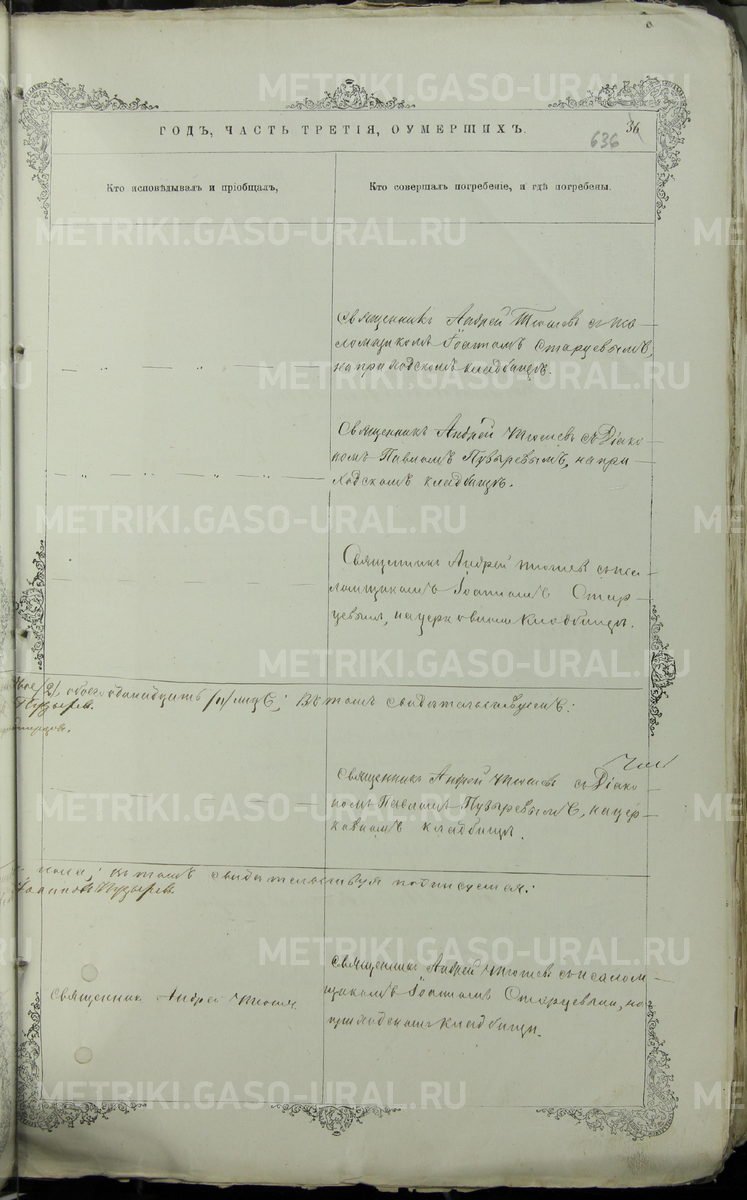 ГОДЪ, ЧАСТЬ ТРЕТІЯ, О УМЕРШИХЪ.
636
36
Кто исповѣдывалъ и пріобщалъ,
Кто совершалъ погребеніе, и гдѣ погребены.
Священникъ Андрей Тюшевъ съ пса-
ломщикомъ Іоанномъ Старцевымъ,
на приходскомъ кладбищѣ.
Священникъ Андрей Тюшевъ съ Діако-
номъ Павломъ Пузыревымъ, на при-
ходскомъ кладбищѣ.
Священникъ Андрей Тюшевъ съ пса-
ломщикомъ Іоанномъ Стар-
цевым, на церковномъ кладбищѣ.
обоего одинадцать /11/ лицъ; въ томъ свидѣтельствуемъ:
Пузырев.
Священникъ Андрей Тюшевъ съ Діако-
номъ Павломъ Пузыревымъ, на цер-
ковномъ кладбищѣ.
въ томъ свидѣтельствуя подписуемся:
Пузырев.
Священник Андрей Тюшев
Священникъ Андрей Тюшевъ съ псалом-
щикомъ Іоанномъ Старцевым, на
приходскомъ кладбищѣ.
METRIKI.GASO-URAL.RU